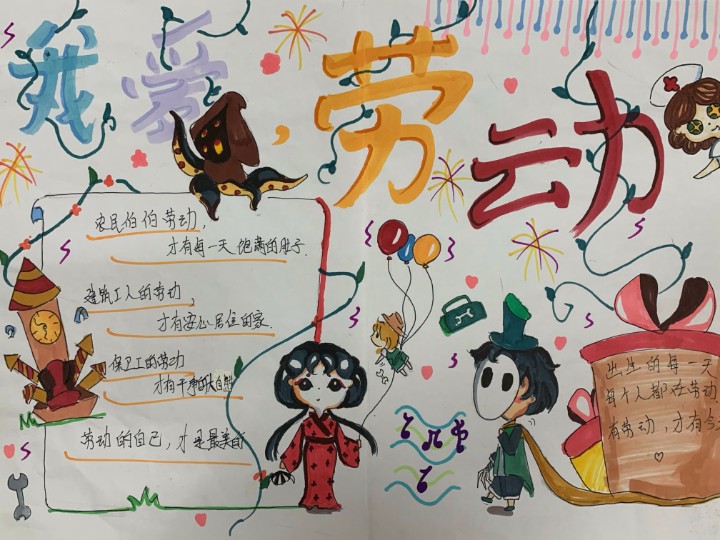 我爱劳动
农民伯伯劳动,
才有每一天饱满的肚子.
建筑工人的劳动,
才有安心居住的家.
保卫工的劳动
才有干净的大自然
劳动的自己,才是最美的
出生的每一天
每个人都在劳动
有劳动,才有今